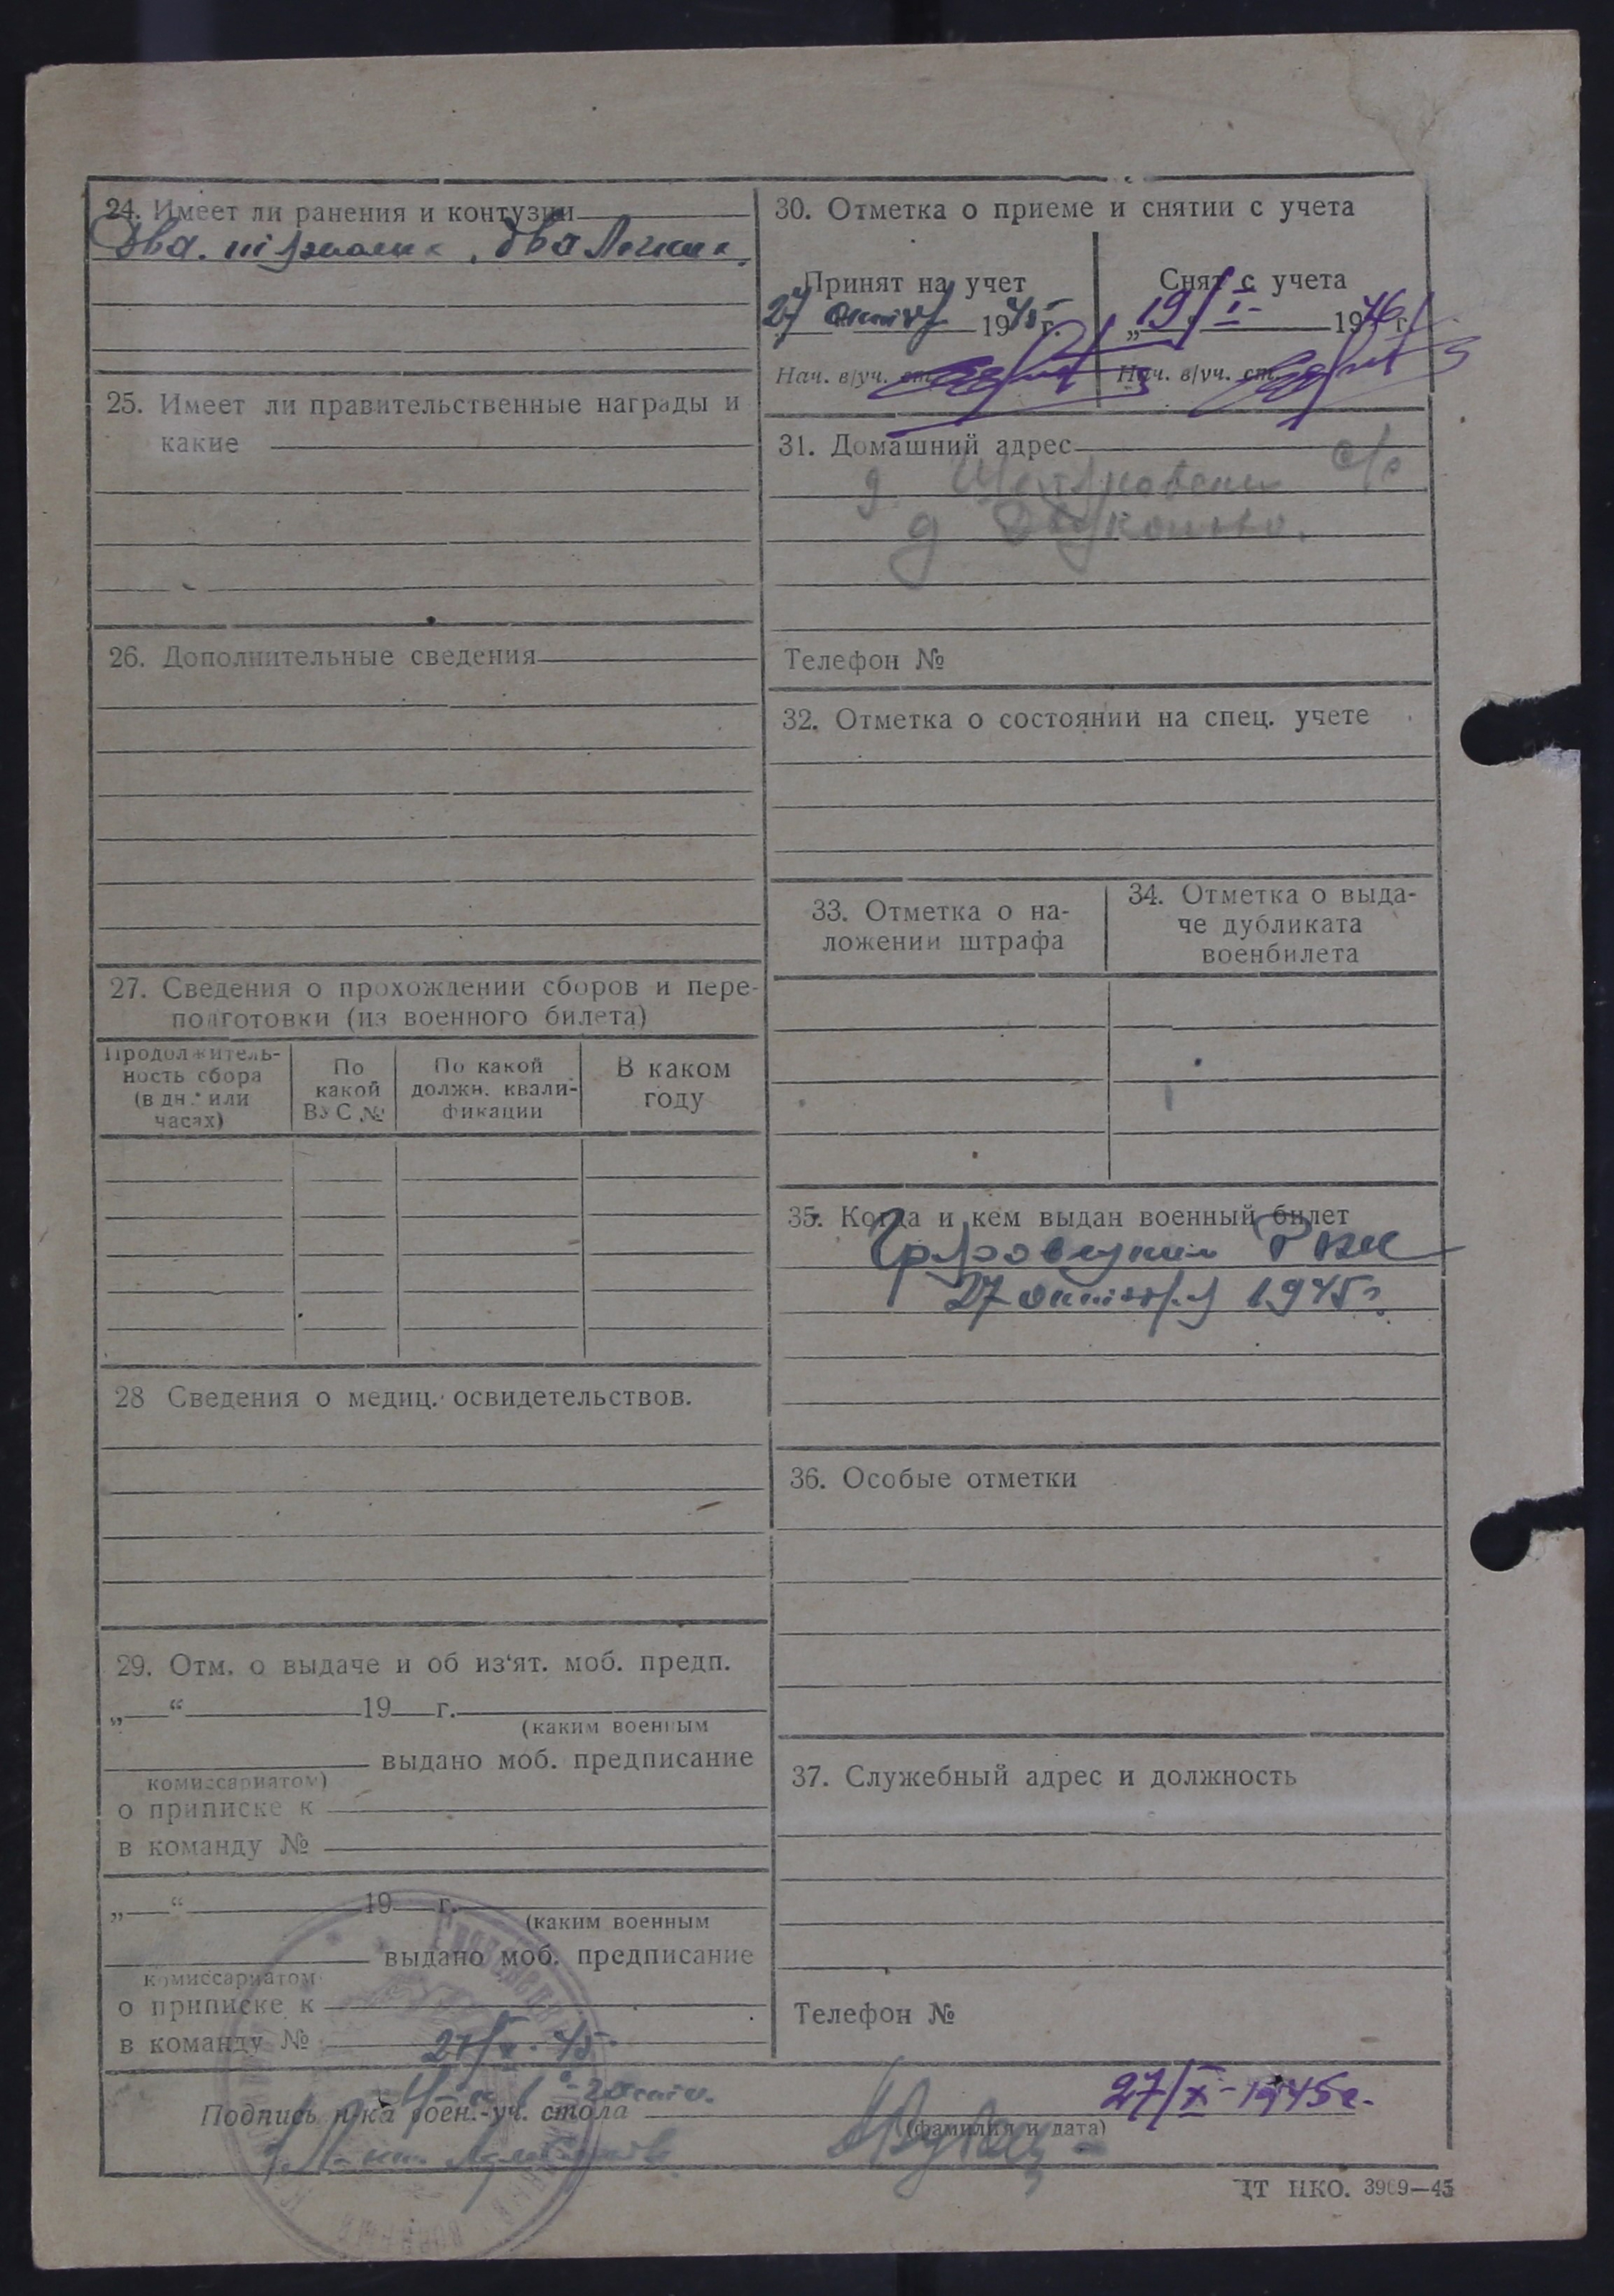 24. Имеет ли ранения и контузии
Два тяжелых, два легких.
25. Имеет ли правительственные награды и
какие
26. Дополнительные сведения
27. Сведения о прохождении сборов и пере-
подготовки (из военного билета)
Продолжитель-
ность сбора
(в дн. или
часах)
По
какой
ВУС №
По какой
должн. квали-
фикации
В каком
году
28 Сведения о медиц. освидетельствов.
29. Отм. о выдаче и об из‘ят. моб. предп.
„ “ 19 г.
(каким военным
выдано моб. предписание
комиссариатом)
о приписке к
в команду №
„ “ 19 г.
(каким военным
выдано моб. предписание
комиссариатом
о приписке к
в команду №
27/X-45
30. Отметка о приеме и снятии с учета
Принят на учет
27 октября 1945 г.
Нач. в/уч. ст.
Снят с учета
„19/I- 1946 г.
Нач. в/уч. ст.
31. Домашний адрес
с/с
д.
д
Телефон №
32. Отметка о состоянии на спец. учете
33. Отметка о на-
ложении штрафа
34. Отметка о выда-
че дубликата
военбилета
35. Когда и кем выдан военный билет
РВК
27 октября 1945г.
36. Особые отметки
37. Служебный адрес и должность
Телефон №
Подпись н-ка воен.-уч. стола
27/X-1945г.
(фамилия и дата)
ЦТ НКО. 3909—45